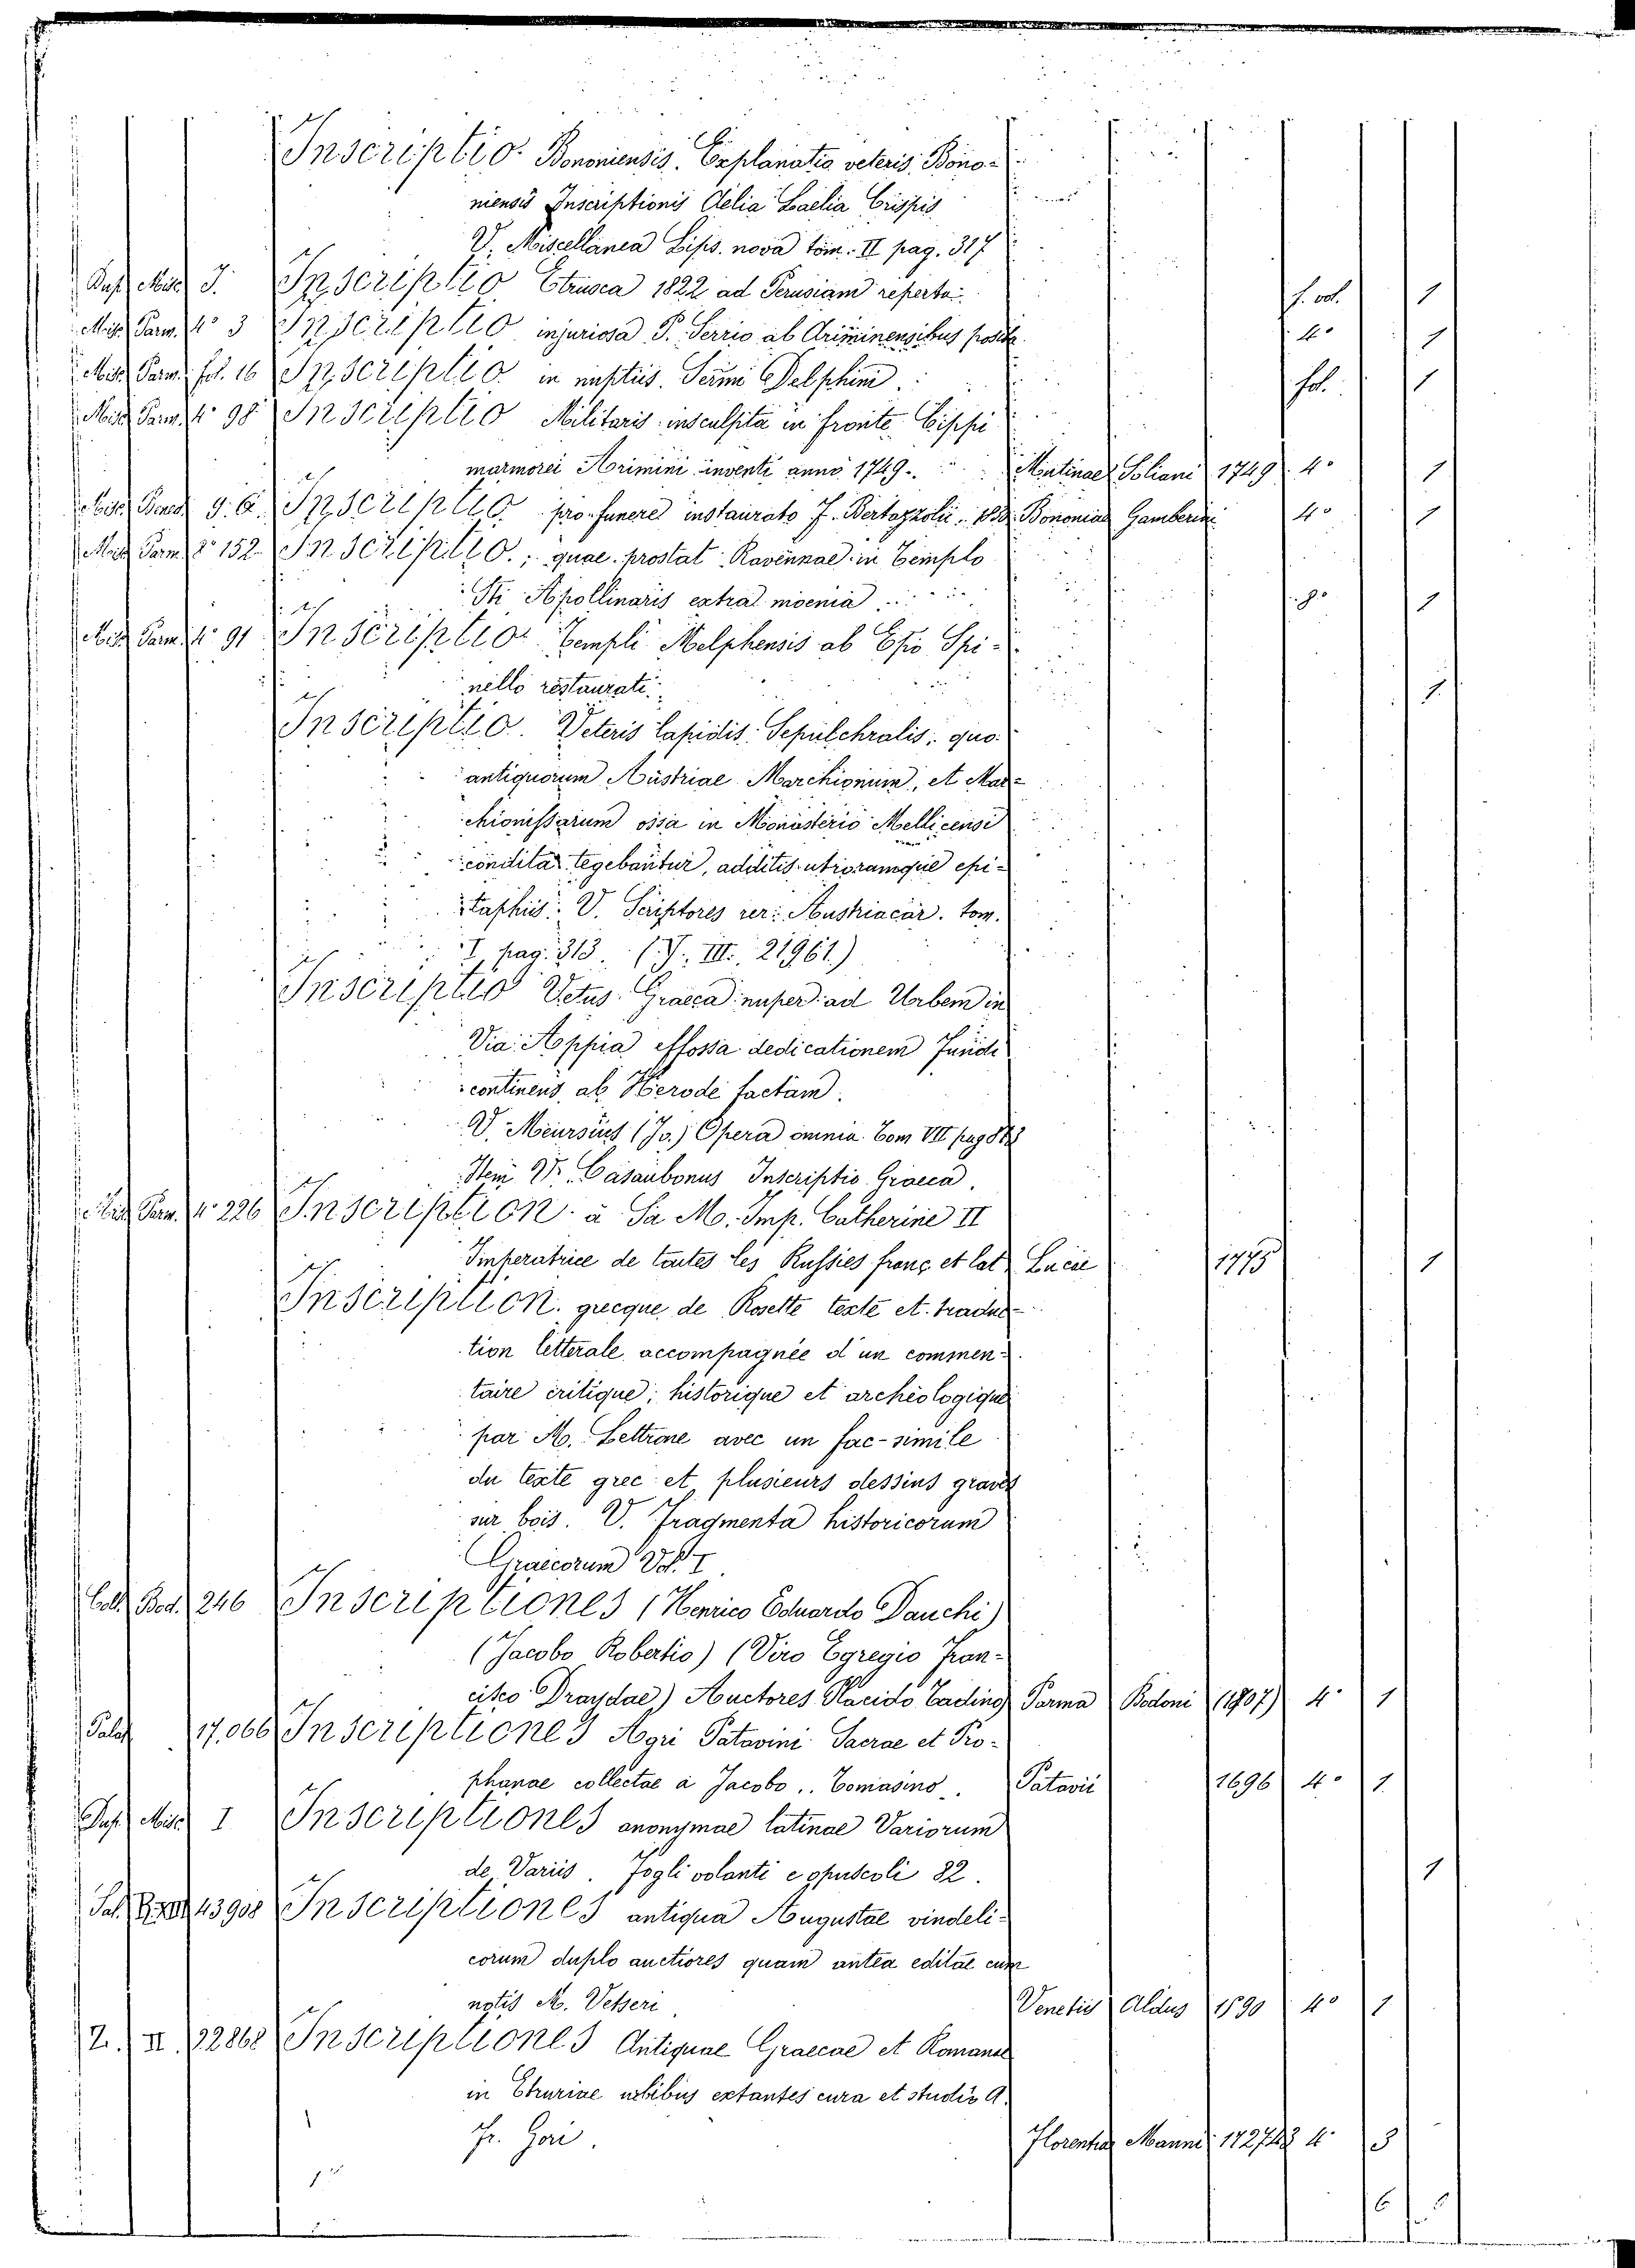 Inscriptio Bononiensis. Explanatio veteris Bono-
niensis Inscriptionis Aelia Laelia Crispis
V. Miscellanea Lips. nova tom. II pag. 317
Misc. I. Inscriptio Etrusca 1822 ad Perusiam reperta f. vol. 1
Misc. Parm. 4° 3 Inscriptio injuriosa P. Serrio ab Ariminensibus posita 4° 1
Misc. Parm. fol. 16 Inscriptio in nuptiis Delphini. fol. 1
Misc. Parm. 4° 98 Inscriptio Militaris insculpta in fronte Cippi
marmorei Arimini inventi anno 1749. Mutinae Soliani 1749 4° 1
Inscriptio pro funere instaurato J. Bertazzolii Bononiae Gamberini 4° 1
Misc. Parm. 8° 152 Inscriptio; quae prostat Ravennae in Templo
Sti Apollinaris extra moenia 8° 1
Misc. Parm. 4° 91 Inscriptio Templi Melphensis ab Epo Spi-
nello restaurati. 1
Inscriptio Veteris Lapidis Sepulchralis, quo
antiquorum Austriae Marchionum, et Mar-
chionissarum ossa in Monasterio Mellicensi
condita tegebantur, additis utrorumque epi-
taphiis. V. Scriptores rer. Austriacar. tom.
I, pag. 313. (J. III. 21961)
Inscriptio Vetus Graeca nuper ad Urbem in
Via Appia effossa dedicationem fundi
continens, ab Herode factam.
V. Meursius (Jo.) Opera omnia Tom VII pag
Item V. Casaubonus Inscriptio Graeca.
Misc. Parm. 4° 226 Inscription à Sa M. Imp. Catherine II
Imperatrice de toutes les Russies franç. et lat. 1775 1
Inscription grecque de Rosette texte et traduc-
tion letterale accompagnée d'un commen-
taire critique, historique et archéologique
par M. Lettrone avec un fac-simile
du texte grec et plusieurs dessins gravés
sur bois. V. Fragmenta historicorum
Graecorum Vol. I.
Coll. Bod. 246 Inscriptiones (Henrico Eduardo Dauchi)
(Jacobo Robertio) (Viro Egregio Fran-
cisco Draydae) Auctores Placido Tading Parma Bodoni (1807) 4° 1
Palat. 17.066 Inscriptiones Agri Patavini Sacrae et Pro-
phanae collectae a Jacobo .. Tomasino. Patavii 1696 4° 1
Misc. I Inscriptiones anonymae latinae Variorum
de Variis. Fogli volanti e opuscoli 82. 1
Pal. 43908 Inscriptiones antiqua Augustae vindeli-
corum duplo auctiores quam antea editae cum
notis M. Velseri Venetiis Aldus 1590 4° 1
Z. II. 22868 Inscriptiones Antiquae Graecae et Romanae
in Etruriae urbibus extantes cura et studio A.
Fr. Gori. Florentiae Manni 172743 4° 3
6